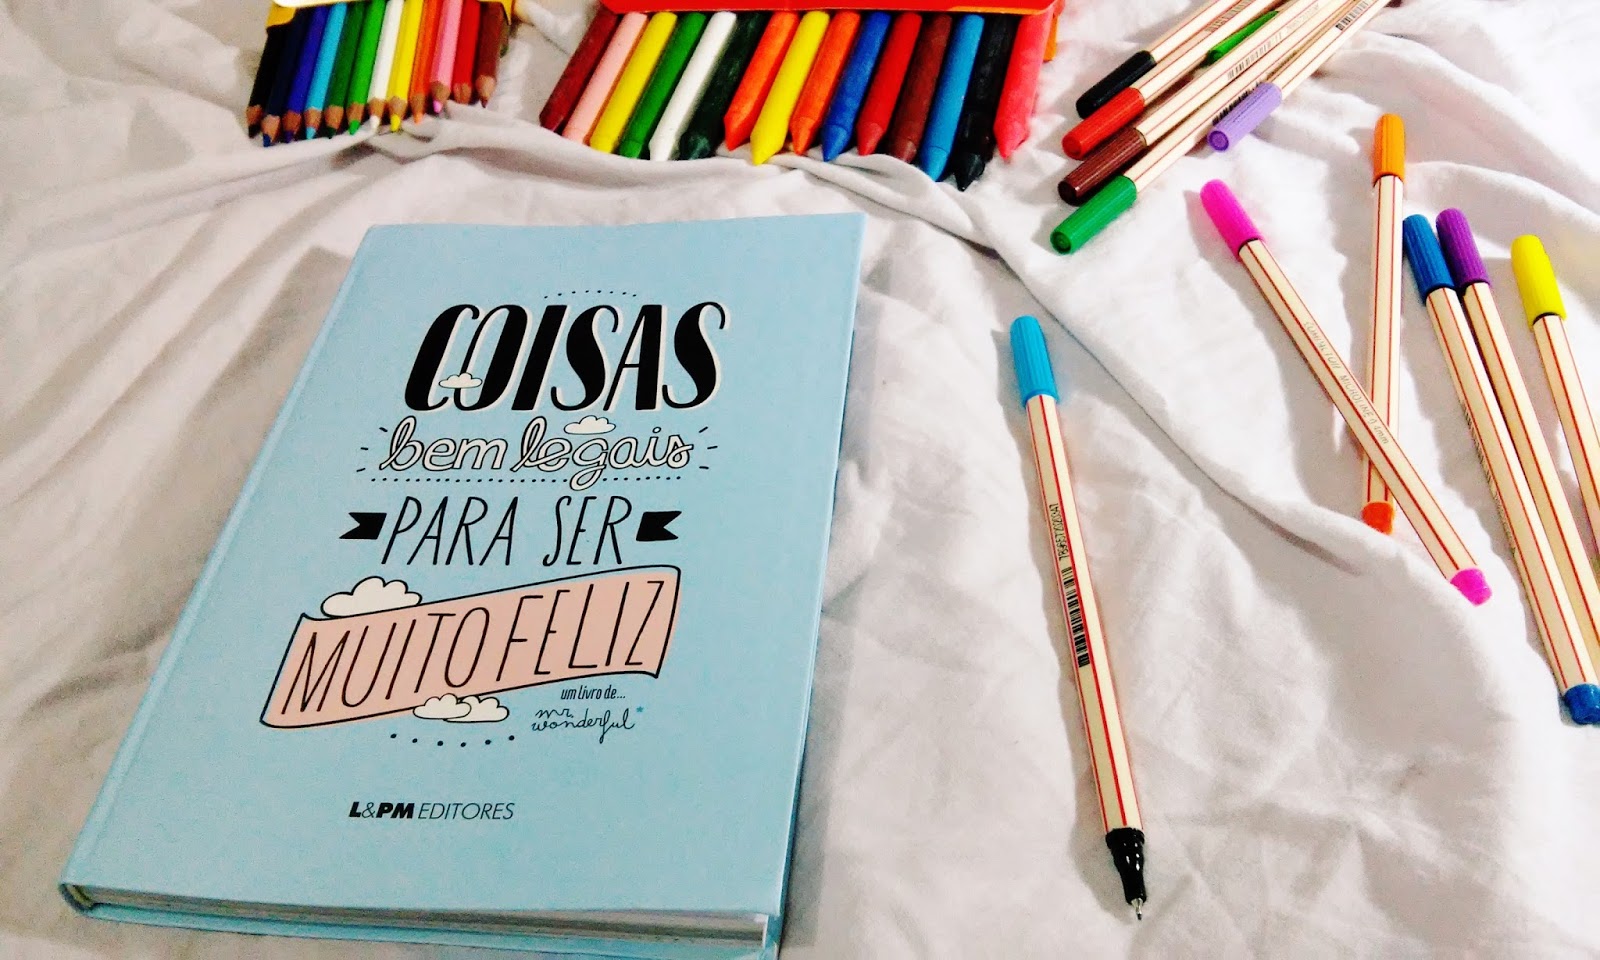 COISAS
bem legais
PARA SER
MUITO FELIZ
um livro de...
mr.
wonderful*
L&PM EDITORES